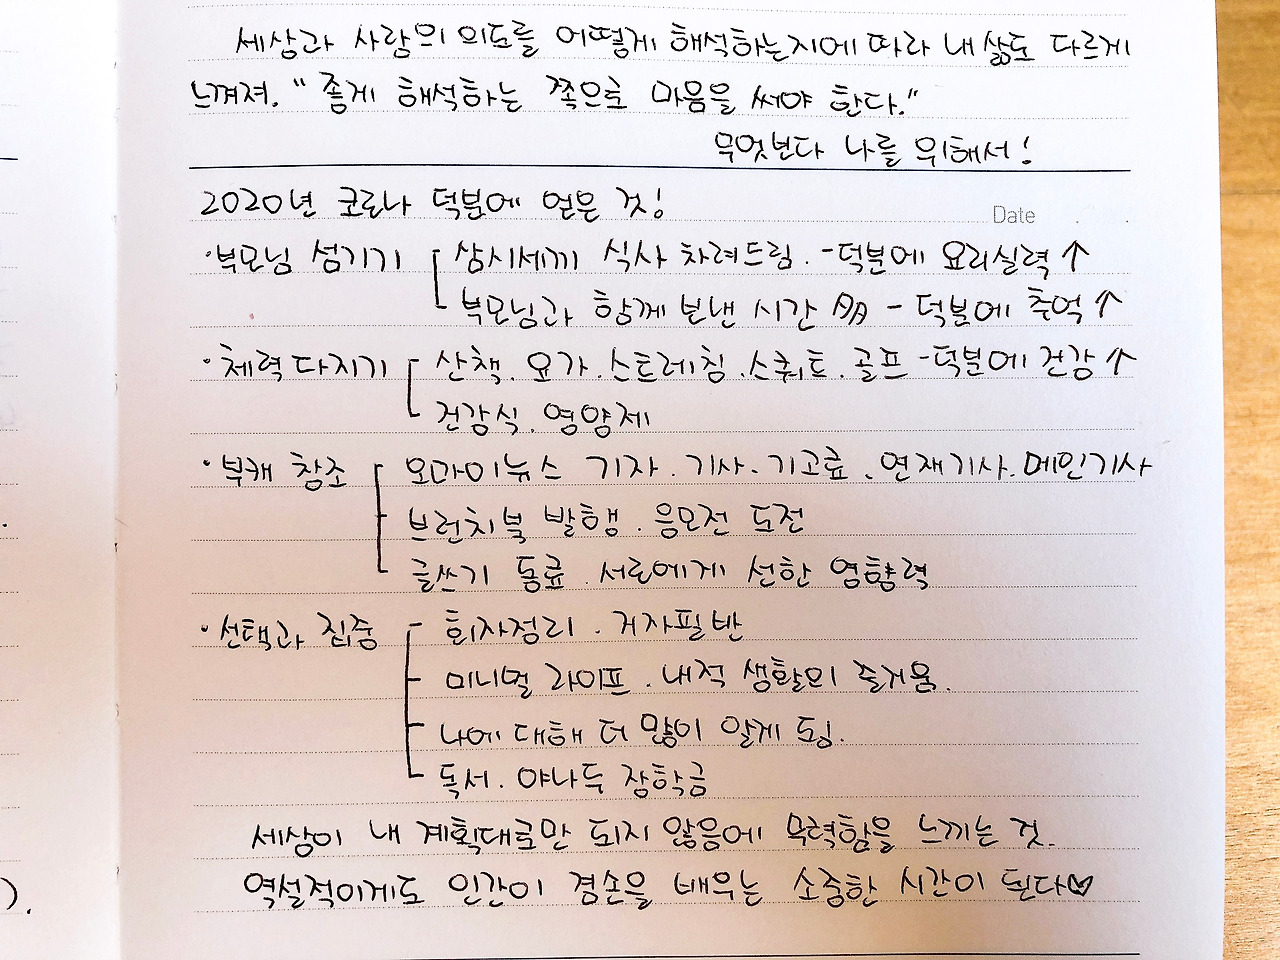 세상과 사람의 의도를 어떻게 해석하는지에 따라 내 삶도 다르게
느껴져. "좋게 해석하는 쪽으로 마음을 써야 한다."
무엇보다 나를 위해서!
2020년 코로나 덕분에 얻은 것!
Date . .
·부모님 섬기기 삼시세끼 식사 차려드림. -덕분에 요리실력↑
부모님과 함께 보낸 시간 多 - 덕분에 추억↑
·체력다지기 산책.요가.스트레칭.스쿼트.골프-덕분에 건강↑
건강식.영양제
·부캐 창조 오마이뉴스 기자.기사.기고료.연재기사.메인기사
브런치북 발행.응모전 도전
글쓰기 동료.서로에게 선한 영향력
·선택과 집중 회자정리.거자필반
미니멀 라이프.내적 생활의 즐거움.
나에 대해 더 많이 알게 됨.
독서.야나두 장학금
세상이 내 계획대로만 되지 않음에 무력함을 느끼는 것.
역설적이게도 인간이 겸손을 배우는 소중한 시간이 된다♡
).